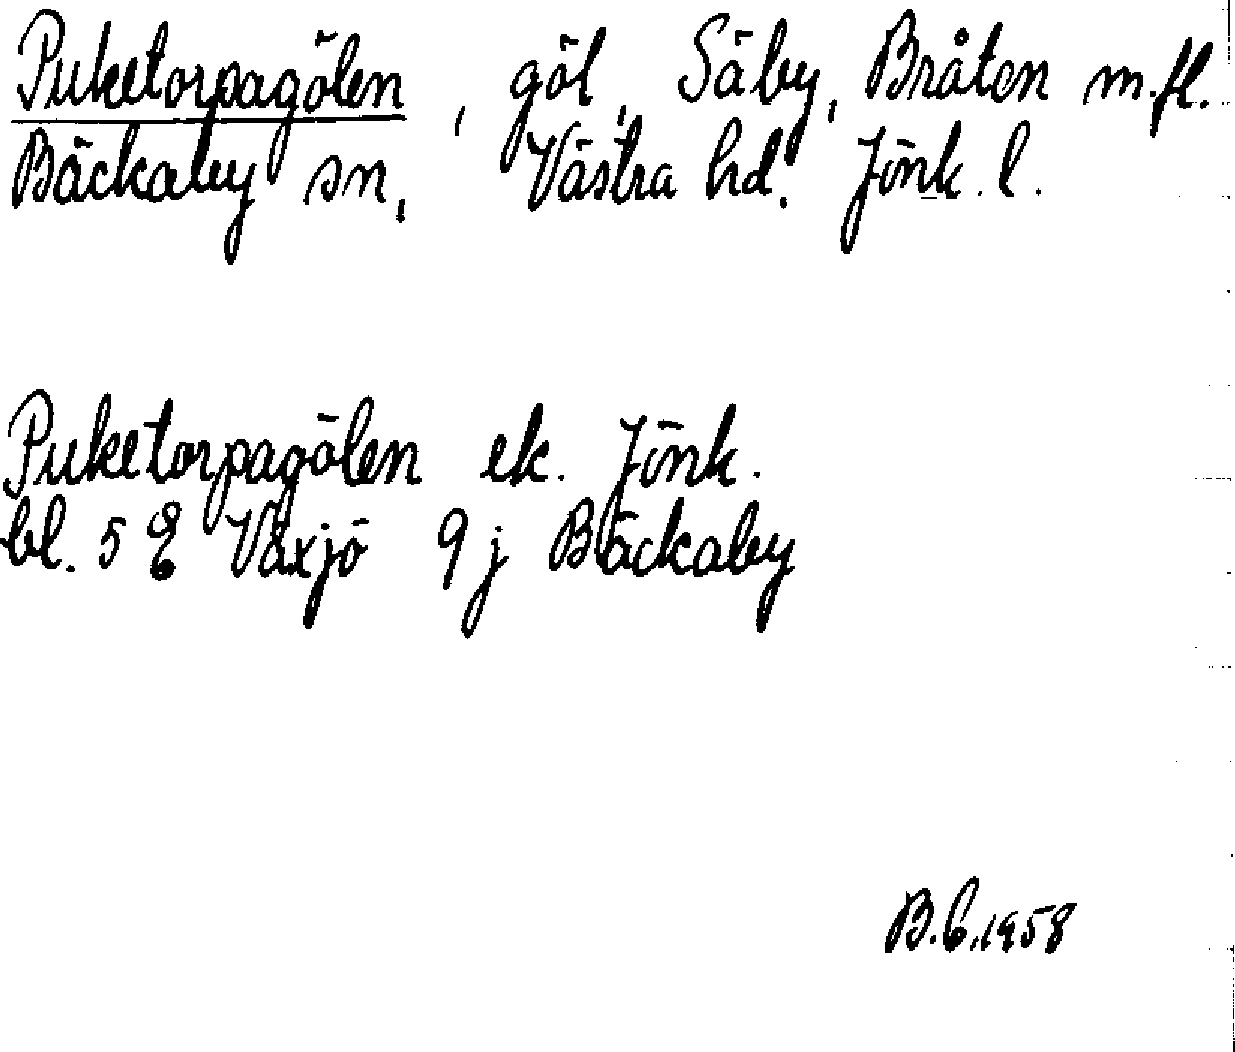 Puketorpagölen, göl, Säby, Bråten m.fl.
Bäckaby sn, Västra hd. Jönk. l.
Puketorpagölen ek. Jönk.
bl. 5 E Växjö 9 j Bäckaby
B.C. 1958